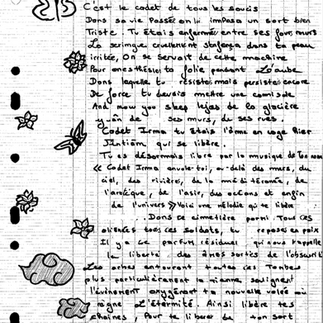 C'est le cadet de tous les soucis
Dans sa vie passée on lui imposa un sort bien
Triste. Tu étais enfermée entre ses four murs
La seringue cruellement s'enfonça dans ta peau
irritée, on se servait de cette machine
Pour anesthésier ta folie pendant L'aube
Dans laquelle tu résistais mais persiste encore
De force tu devais mettre une camisole
And now you sleep of de la glacière
de ses murs, de ses rues.
Cadet Irma tu étais l'âme en cage hier
qui se libère.
Tu es désormais libre par la musique de ton nom
« Cadet Irma envole-toi, au-delà des murs, du
ciel, des rivières, de la méditerranée, de
l'arctique, de l'asie, des océans et enfin
de l'univers » Voici une mélodie qui se libère
Dans ce cimetière parmi Tous ces
aliénés tous ces soldats, tu reposes en paix
Il y a ce parfum résiduel qui nous rappelle
la liberté des âmes sorties de l'obscurité
Les ormes entourant toutes ces Tombes
plus particulièrement la mienne soulignent
L'événement oxygénant ta nouvelle voie où
règne L'éternité. Ainsi libère tes
chaînes, Pour te libérer de ton sort